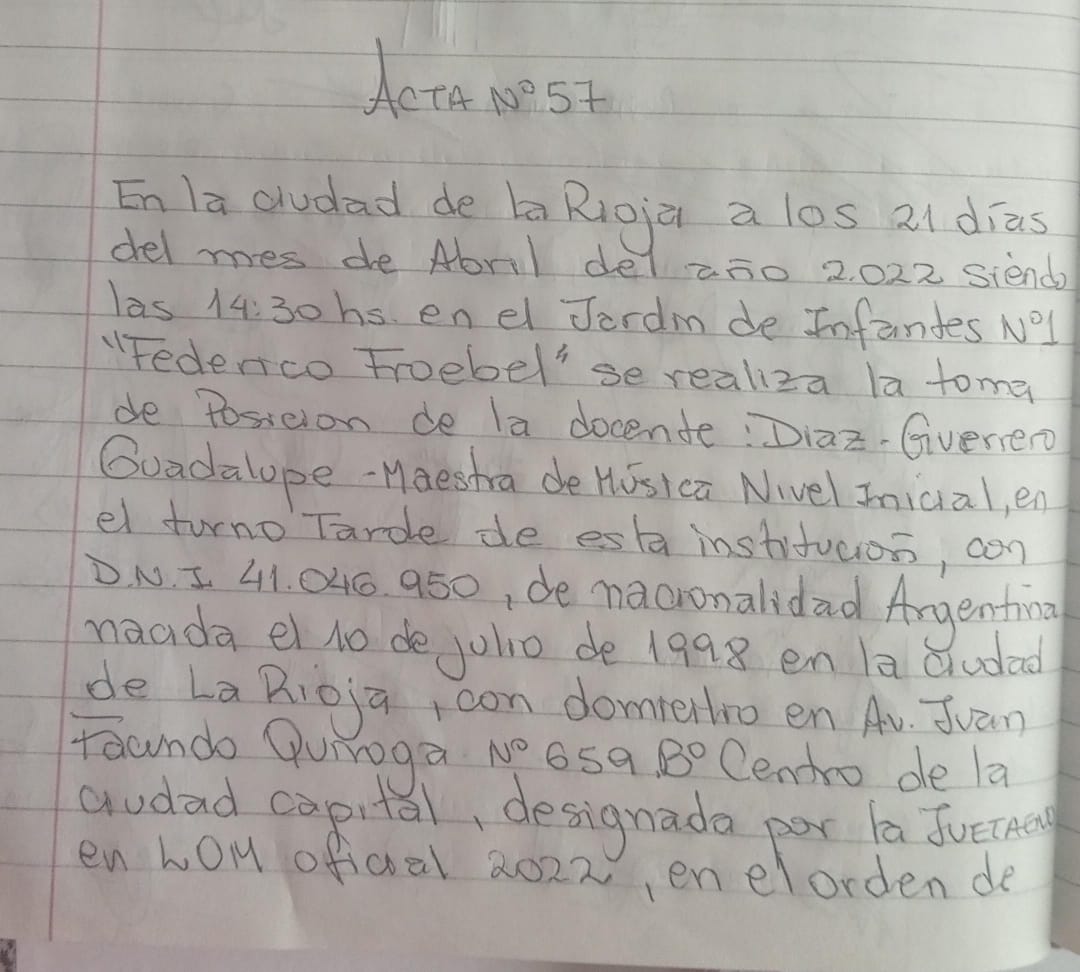 ACTA Nº 57
En la ciudad de la Rioja a los 21 días
del mes de Abril del año 2.022 siendo
las 14:30 hs. en el Jardin de Infantes Nº1
"Federico Froebel" se realiza la toma
de Posicion de la docente: Diaz - Guerrero
Guadalupe - Maestra de Música Nivel Inicial, en
el turno Tarde de esta institución, con
D.N.I 41.046.950, de nacionalidad Argentina
nacida el 10 de julio de 1998 en la ciudad
de La Rioja, con domicilio en Av. Juan
Facundo Quiroga Nº 659 Bº Centro de la
ciudad capital, designada por la JUETAENO
en LOM oficial 2022, en el orden de